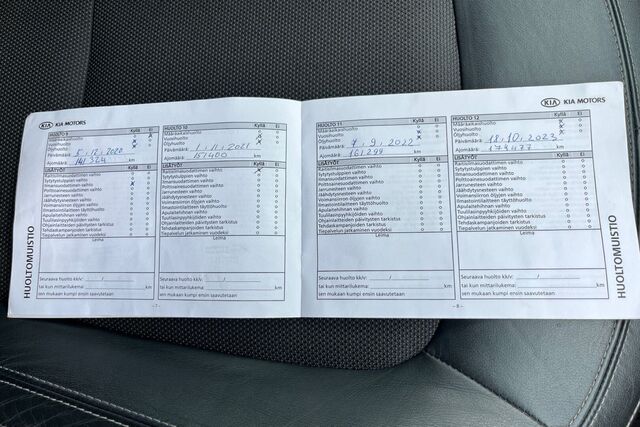 KIA KIA MOTORS
HUOLTO 9 Kyllä Ei
Määräaikaishuolto
Vuosihuolto
Öljyhuolto
Päivämäärä: 5.12.2020
Ajomäärä: 141 324 km
LISÄTYÖT
Raitisilmasuodattimen vaihto
Sytytystulppien vaihto
Ilmansuodattimen vaihto
Polttoainesuodattimen vaihto
Jarrunesteen vaihto
Jäähdytysnesteen vaihto
Voimansiirron öljyjen vaihto
Ilmastointilaitteen täyttöhuolto
Apulaitehihnan vaihto
Tuulilasinpyyhkijöiden vaihto
Ohjainlaitteiden päivitysten tarkistus
Tehdaskampanjoiden tarkistus
Tiepalvelun jatkaminen vuodeksi
Leima
Seuraava huolto kk/v: /
tai kun mittarilukema: km
sen mukaan kumpi ensin saavutetaan
- 7 -
HUOLTO 10 Kyllä Ei
Määräaikaishuolto
Vuosihuolto
Öljyhuolto
Päivämäärä: 1.11.2021
Ajomäärä: 151400 km
LISÄTYÖT
Raitisilmasuodattimen vaihto
Sytytystulppien vaihto
Ilmansuodattimen vaihto
Polttoainesuodattimen vaihto
Jarrunesteen vaihto
Jäähdytysnesteen vaihto
Voimansiirron öljyjen vaihto
Ilmastointilaitteen täyttöhuolto
Apulaitehihnan vaihto
Tuulilasinpyyhkijöiden vaihto
Ohjainlaitteiden päivitysten tarkistus
Tehdaskampanjoiden tarkistus
Tiepalvelun jatkaminen vuodeksi
Leima
Seuraava huolto kk/v: /
tai kun mittarilukema: km
sen mukaan kumpi ensin saavutetaan
HUOLTOMUISTIO
KIA KIA MOTORS
HUOLTO 11 Kyllä Ei
Määräaikaishuolto
Vuosihuolto
Öljyhuolto
Päivämäärä: 7.9.2022
Ajomäärä: 161 299 km
LISÄTYÖT
Raitisilmasuodattimen vaihto
Sytytystulppien vaihto
Ilmansuodattimen vaihto
Polttoainesuodattimen vaihto
Jarrunesteen vaihto
Jäähdytysnesteen vaihto
Voimansiirron öljyjen vaihto
Ilmastointilaitteen täyttöhuolto
Apulaitehihnan vaihto
Tuulilasinpyyhkijöiden vaihto
Ohjainlaitteiden päivitysten tarkistus
Tehdaskampanjoiden tarkistus
Tiepalvelun jatkaminen vuodeksi
Leima
Seuraava huolto kk/v: /
tai kun mittarilukema: km
sen mukaan kumpi ensin saavutetaan
- 8 -
HUOLTO 12 Kyllä Ei
Määräaikaishuolto
Vuosihuolto
Öljyhuolto
Päivämäärä: 18.10.2023
Ajomäärä: 173477 km
LISÄTYÖT
Raitisilmasuodattimen vaihto
Sytytystulppien vaihto
Ilmansuodattimen vaihto
Polttoainesuodattimen vaihto
Jarrunesteen vaihto
Jäähdytysnesteen vaihto
Voimansiirron öljyjen vaihto
Ilmastointilaitteen täyttöhuolto
Apulaitehihnan vaihto
Tuulilasinpyyhkijöiden vaihto
Ohjainlaitteiden päivitysten tarkistus
Tehdaskampanjoiden tarkistus
Tiepalvelun jatkaminen vuodeksi
Leima
Seuraava huolto kk/v: /
tai kun mittarilukema: km
sen mukaan kumpi ensin saavutetaan
HUOLTOMUISTIO